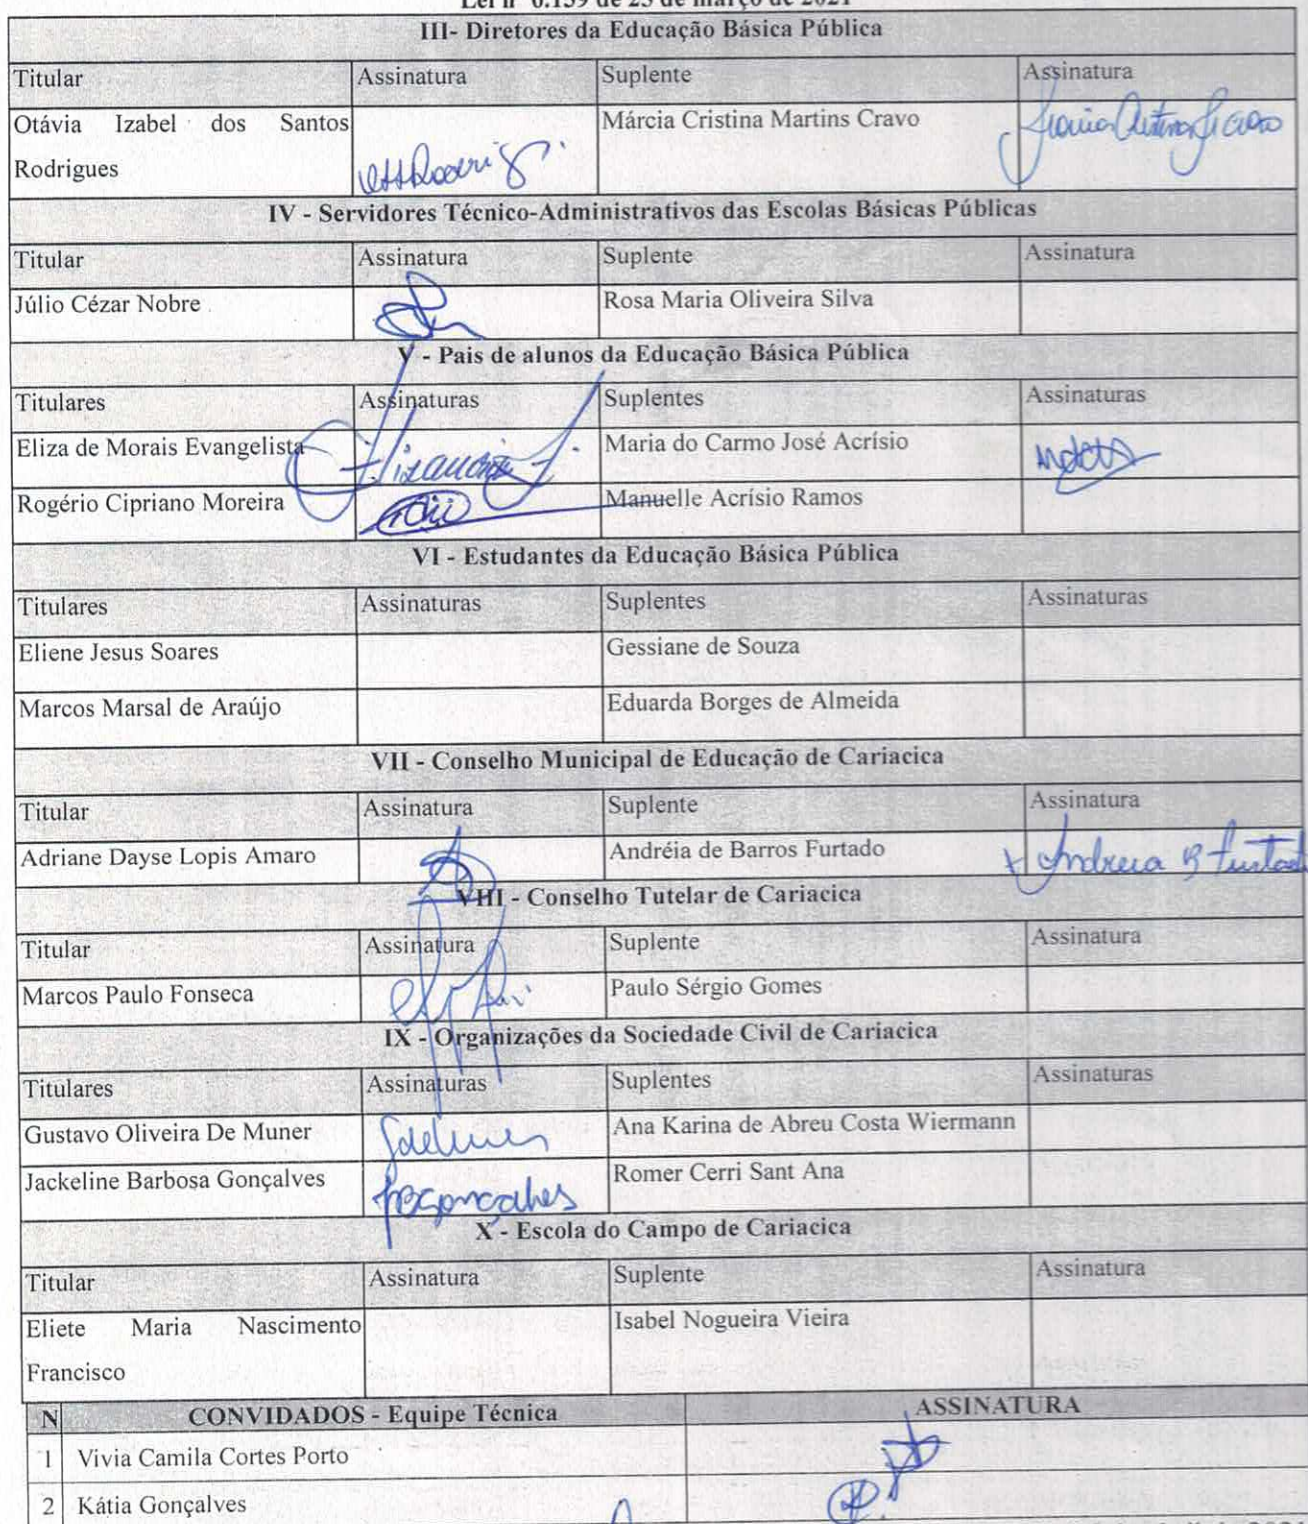 Lei nº 6.159 de 25 de março de 2021
III- Diretores da Educação Básica Pública
Titular Assinatura Suplente Assinatura
Otávia Izabel dos Santos Márcia Cristina Martins Cravo
Rodrigues
IV - Servidores Técnico-Administrativos das Escolas Básicas Públicas
Titular Assinatura Suplente Assinatura
Júlio Cézar Nobre Rosa Maria Oliveira Silva
V - Pais de alunos da Educação Básica Pública
Titulares Assinaturas Suplentes Assinaturas
Eliza de Morais Evangelista Maria do Carmo José Acrísio
Rogério Cipriano Moreira Manuelle Acrísio Ramos
VI - Estudantes da Educação Básica Pública
Titulares Assinaturas Suplentes Assinaturas
Eliene Jesus Soares Gessiane de Souza
Marcos Marsal de Araújo Eduarda Borges de Almeida
VII - Conselho Municipal de Educação de Cariacica
Titular Assinatura Suplente Assinatura
Adriane Dayse Lopis Amaro Andréia de Barros Furtado Andreia B Furtado
VIII - Conselho Tutelar de Cariacica
Titular Assinatura Suplente Assinatura
Marcos Paulo Fonseca Paulo Sérgio Gomes
IX - Organizações da Sociedade Civil de Cariacica
Titulares Assinaturas Suplentes Assinaturas
Gustavo Oliveira De Muner Ana Karina de Abreu Costa Wiermann
Jackeline Barbosa Gonçalves Romer Cerri Sant Ana
X - Escola do Campo de Cariacica
Titular Assinatura Suplente Assinatura
Eliete Maria Nascimento Isabel Nogueira Vieira
Francisco
N CONVIDADOS - Equipe Técnica ASSINATURA
1 Vivia Camila Cortes Porto
2 Kátia Gonçalves